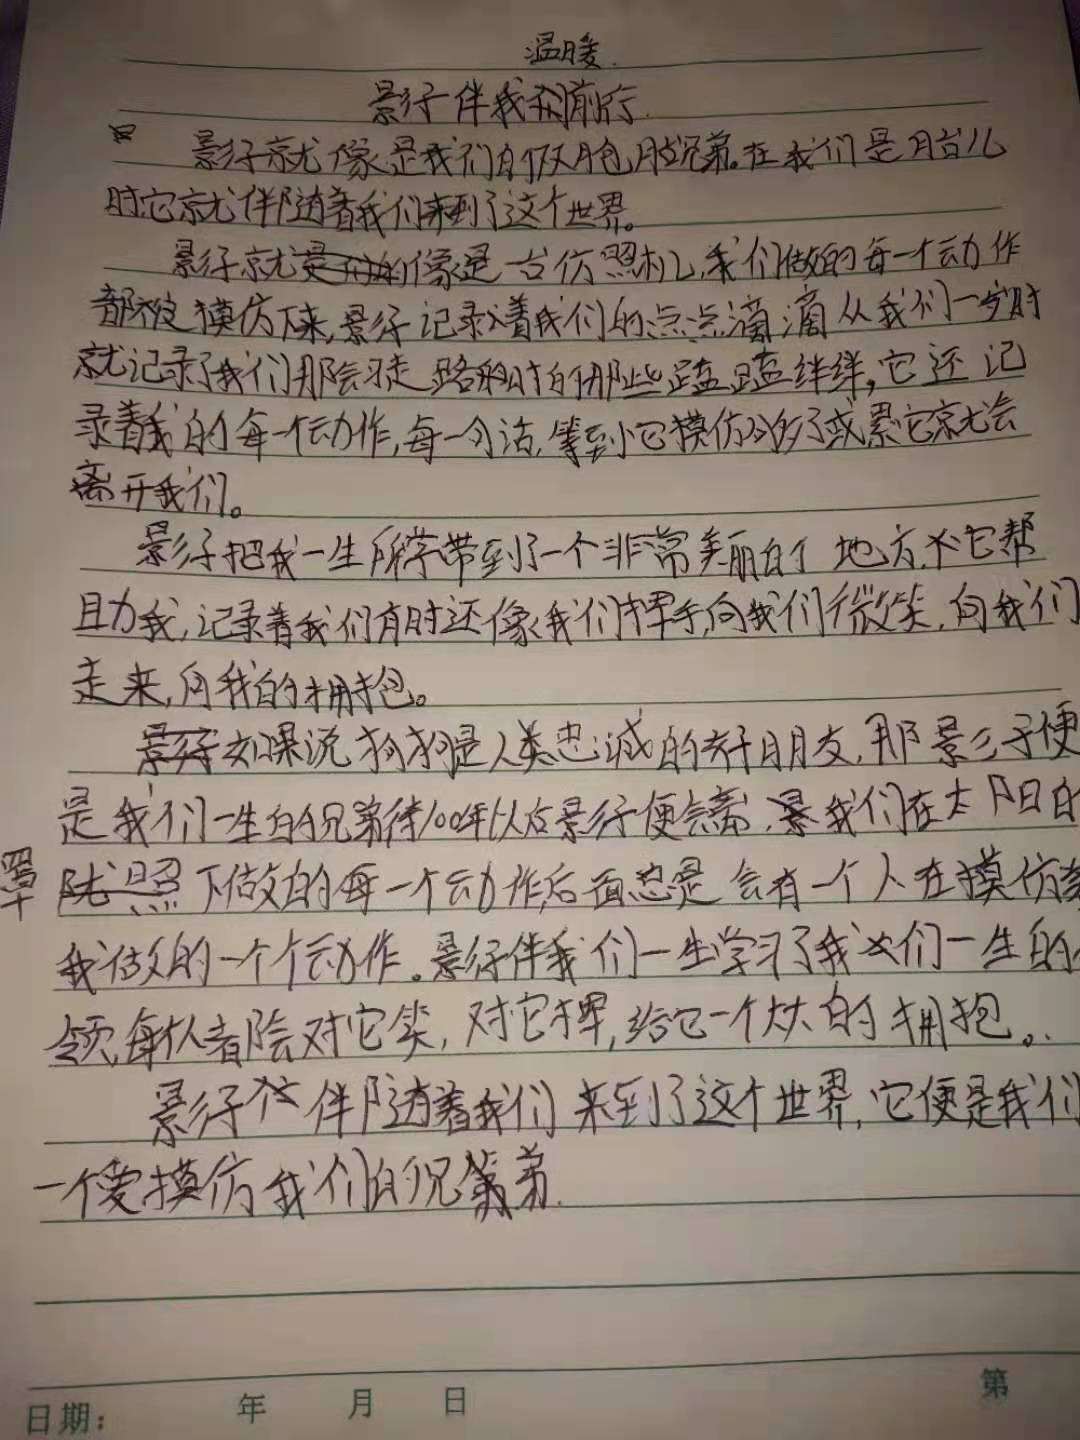 温暖
影子伴我们前行
影子就像是我们的双胞胎兄弟。在我们是胎儿
时,它就伴随着我们来到了这个世界。
影子就像是一台仿照机,我们做的每一个动作
都被模仿下来,影子记录着我们的点点滴滴从我们一岁时
就记录了我们那会走路时的那些磕磕绊绊,它还记
录着我的每一个动作,每一句话,等到它模仿多了或累它就会
离开我们。
影子把我一生所学带到了一个非常美丽的地方,它帮
助我,记录着我们有时还像我们挥手,向我们微笑,向我们
走来,向我的拥抱。
如果说狗狗是人类忠诚的好朋友,那影子便
是我们一生的兄弟待100年以后影子便会离,我们在太阳的
罩下做的每一个动作后面总是会有一个人在模仿
我做的一个个动作。影子伴我们一生学习了我们一生的
领,每人都会对它笑,对它挥,给它一个大大的拥抱。
影子伴随着我们来到了这个世界,它便是我们
一个爱模仿我们的兄弟.
日期: 年 月 日
第